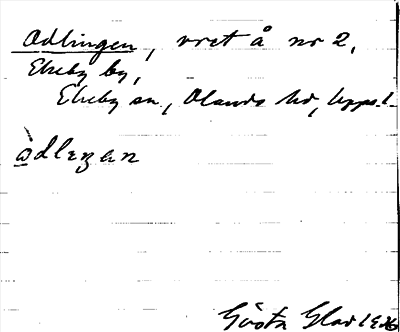 Odlingen, vret å nr 2,
Ekeby by,
Ekeby sn, Olands hd, Upps. l.
odlegan
Gösta Glad